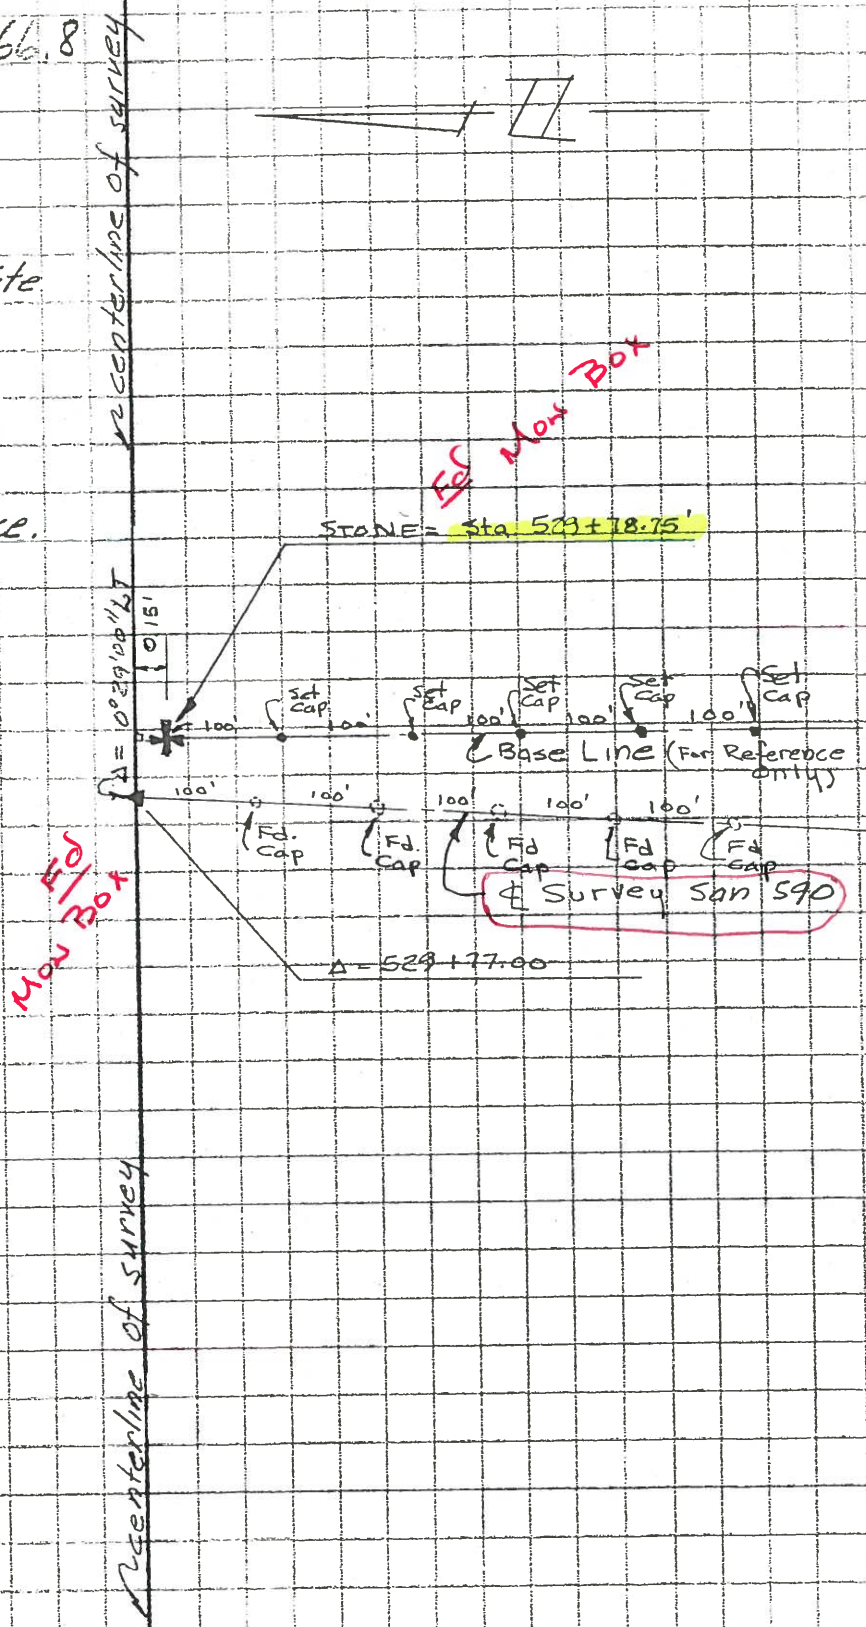 66.8
centerline of survey
Fd Mon Box
STONE = Sta 529+78.75'
Δ = 0°29'00" LT
0.15'
Set Cap
Set Cap
Set Cap
Set Cap
Set Cap
100'
100'
100'
100'
100'
Base Line (For Reference
Only)
100'
100'
100'
100'
100'
Fd. Cap
Fd. Cap
Fd Cap
Fd Cap
Fd Cap
℄ Survey San 590
Fd
Mon Box
Δ = 529+77.00
centerline of survey